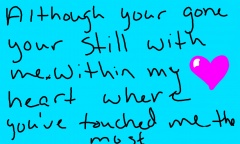 Although your gone
your still with
me. within my
heart where
you've touched me the
most